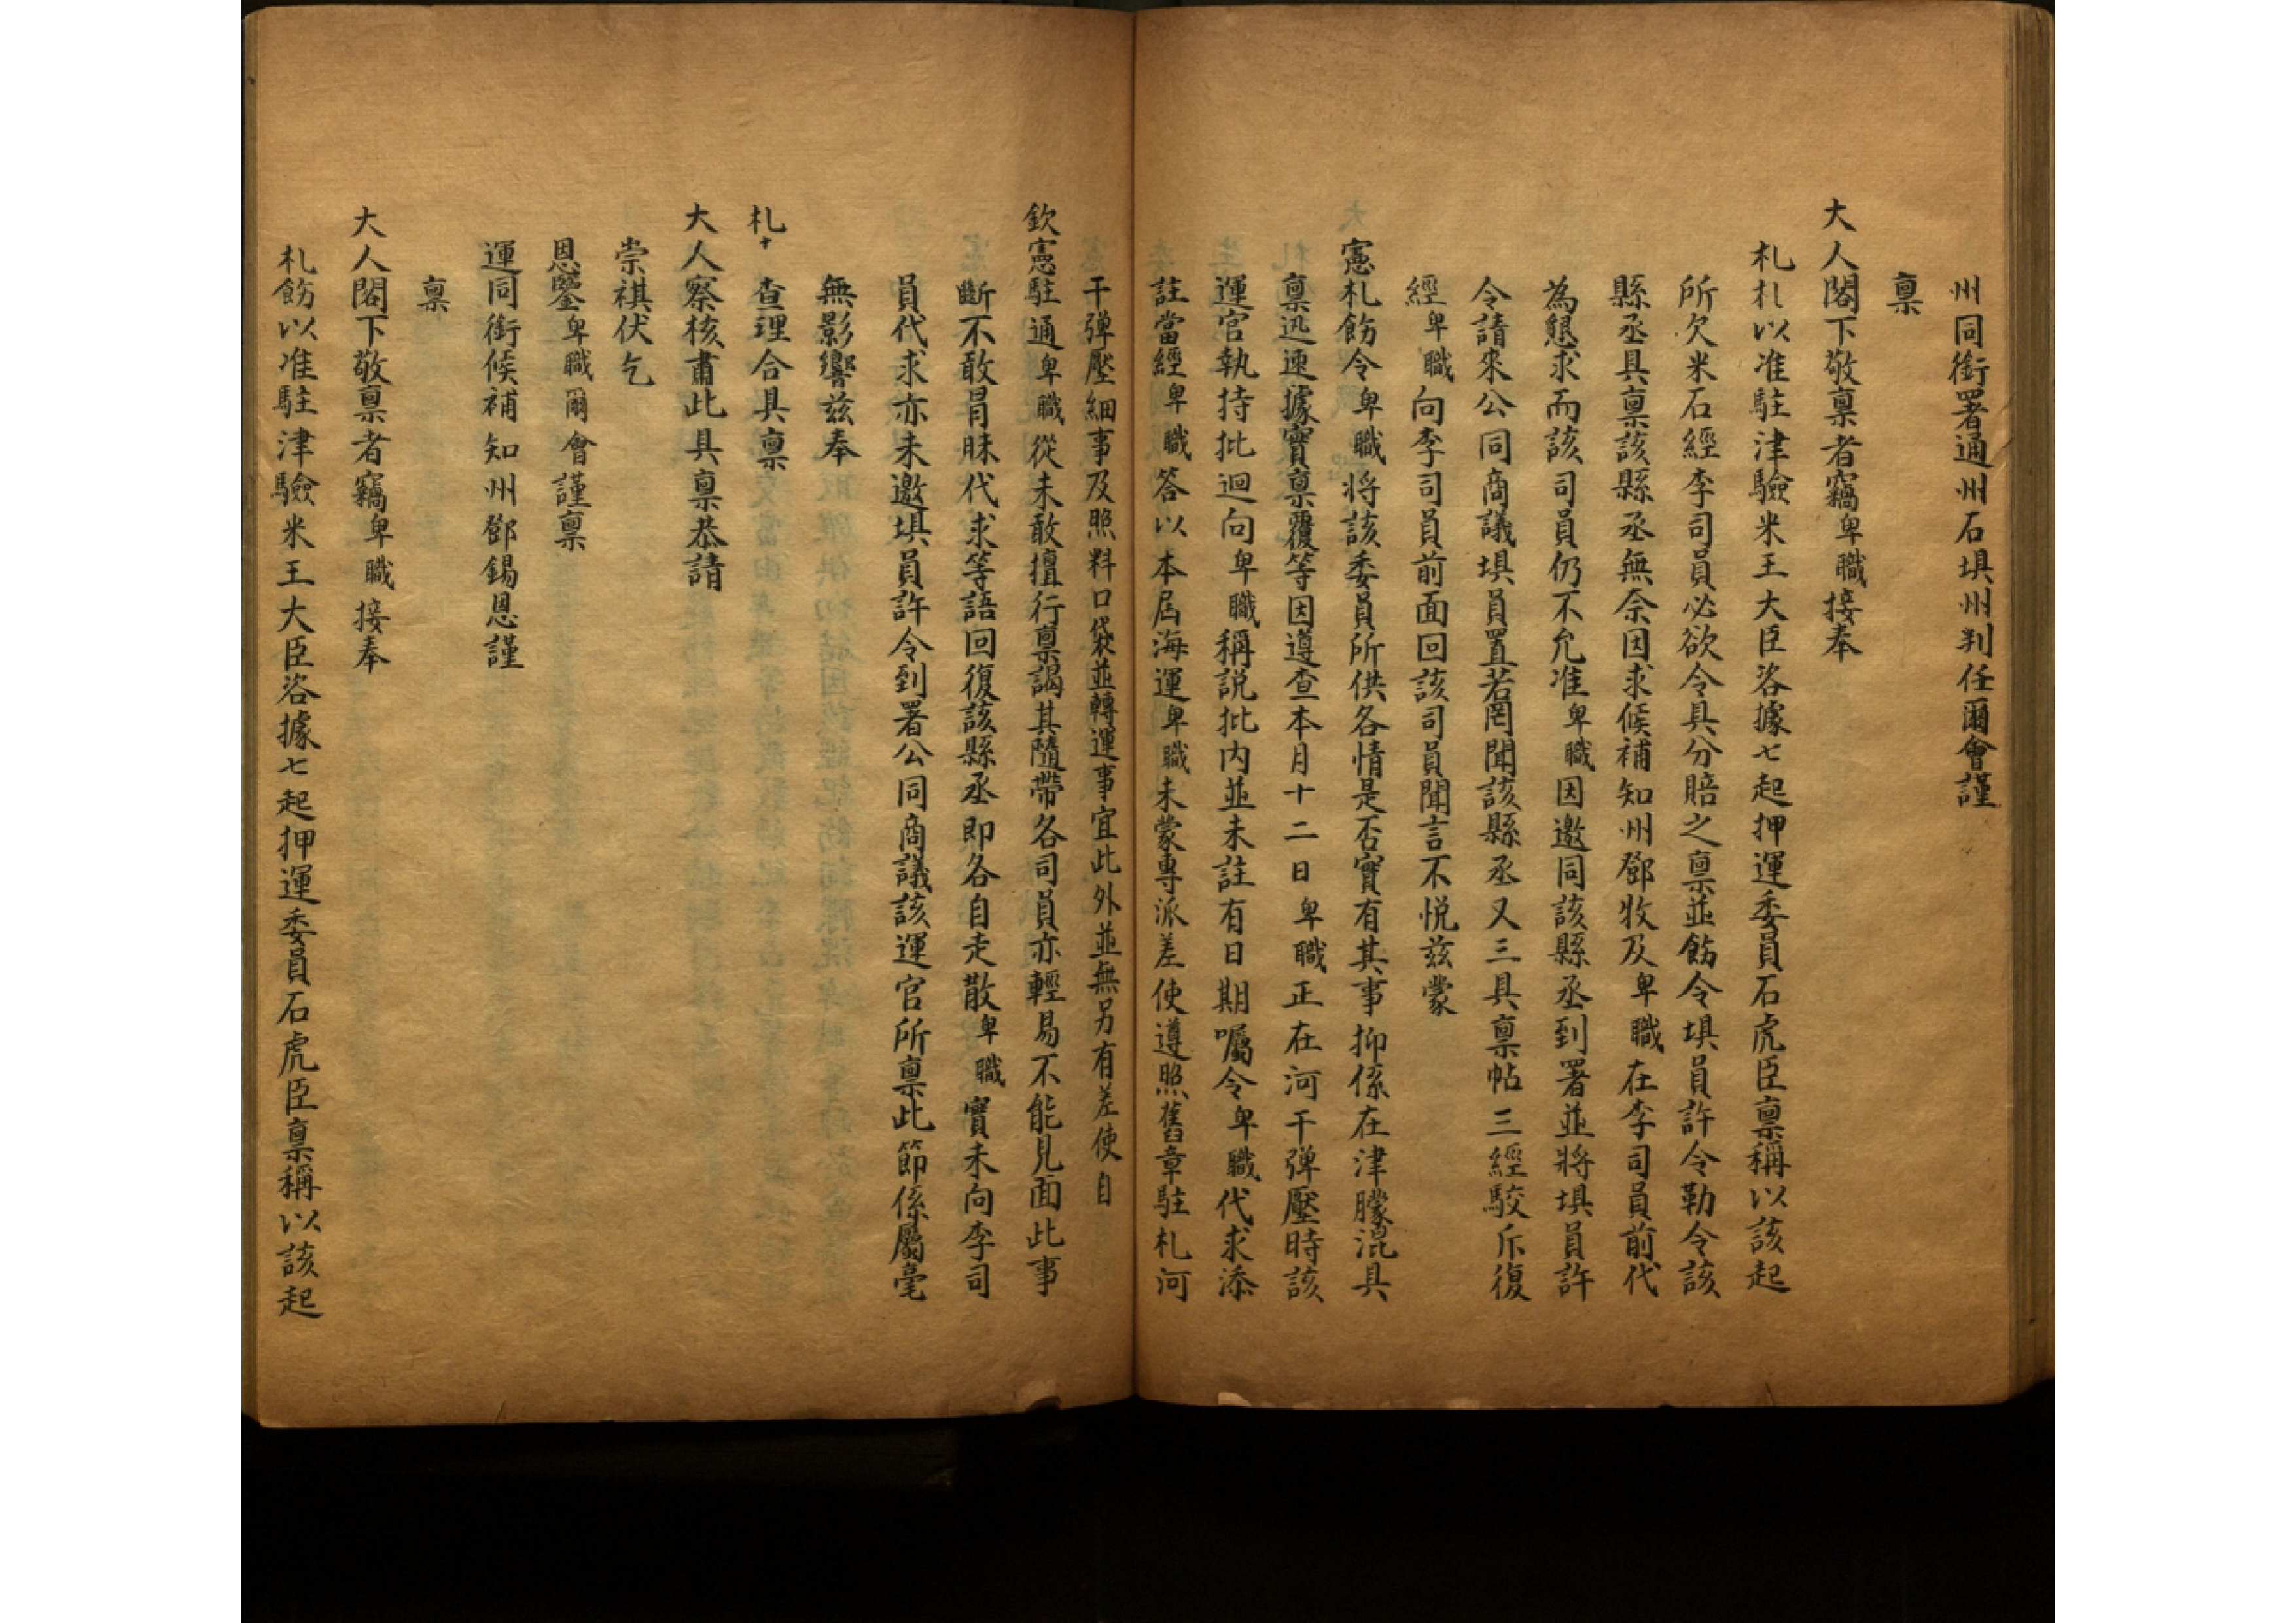 州同銜署通州石垻州判任爾會謹
稟
大人閣下敬稟者竊卑職接奉
札札以准駐津驗米王大臣咨據七起押運委員石虎臣稟稱以該起
所欠米石經李司員必欲令具分賠之稟並飭令垻員許令勒令該
縣丞具稟該縣丞無奈因求候補知州鄧牧及卑職在李司員前代
為懇求而該司員仍不允准卑職因邀同該縣丞到署並將垻員許
令請來公同商議垻員置若罔聞該縣丞又三具稟帖三經駮斥復
經卑職向李司員前面回該司員聞言不悅茲蒙
憲札飭令卑職將該委員所供各情是否實有其事抑係在津朦混具
稟迅速據實稟覆等因遵查本月十二日卑職正在河干彈壓時該
運官執持批迴向卑職稱説批内並未註有日期囑令卑職代求添
註當經卑職答以本屆海運卑職未蒙專派差使遵照舊章駐札河
干彈壓細事及照料口袋並轉運事宜此外並無另有差使自
欽憲駐通卑職從未敢擅行稟謁其隨帶各司員亦輕易不能見面此事
斷不敢冐昧代求等語回復該縣丞即各自走散卑職實未向李司
員代求亦未邀垻員許令到署公同商議該運官所稟此節係屬毫
無影響茲奉
札查理合具稟
大人察核肅此具稟恭請
崇祺伏乞
恩鑒卑職爾會謹稟
運同銜候補知州鄧錫恩謹
稟
大人閣下敬稟者竊卑職接奉
札飭以准駐津驗米王大臣咨據七起押運委員石虎臣稟稱以該起